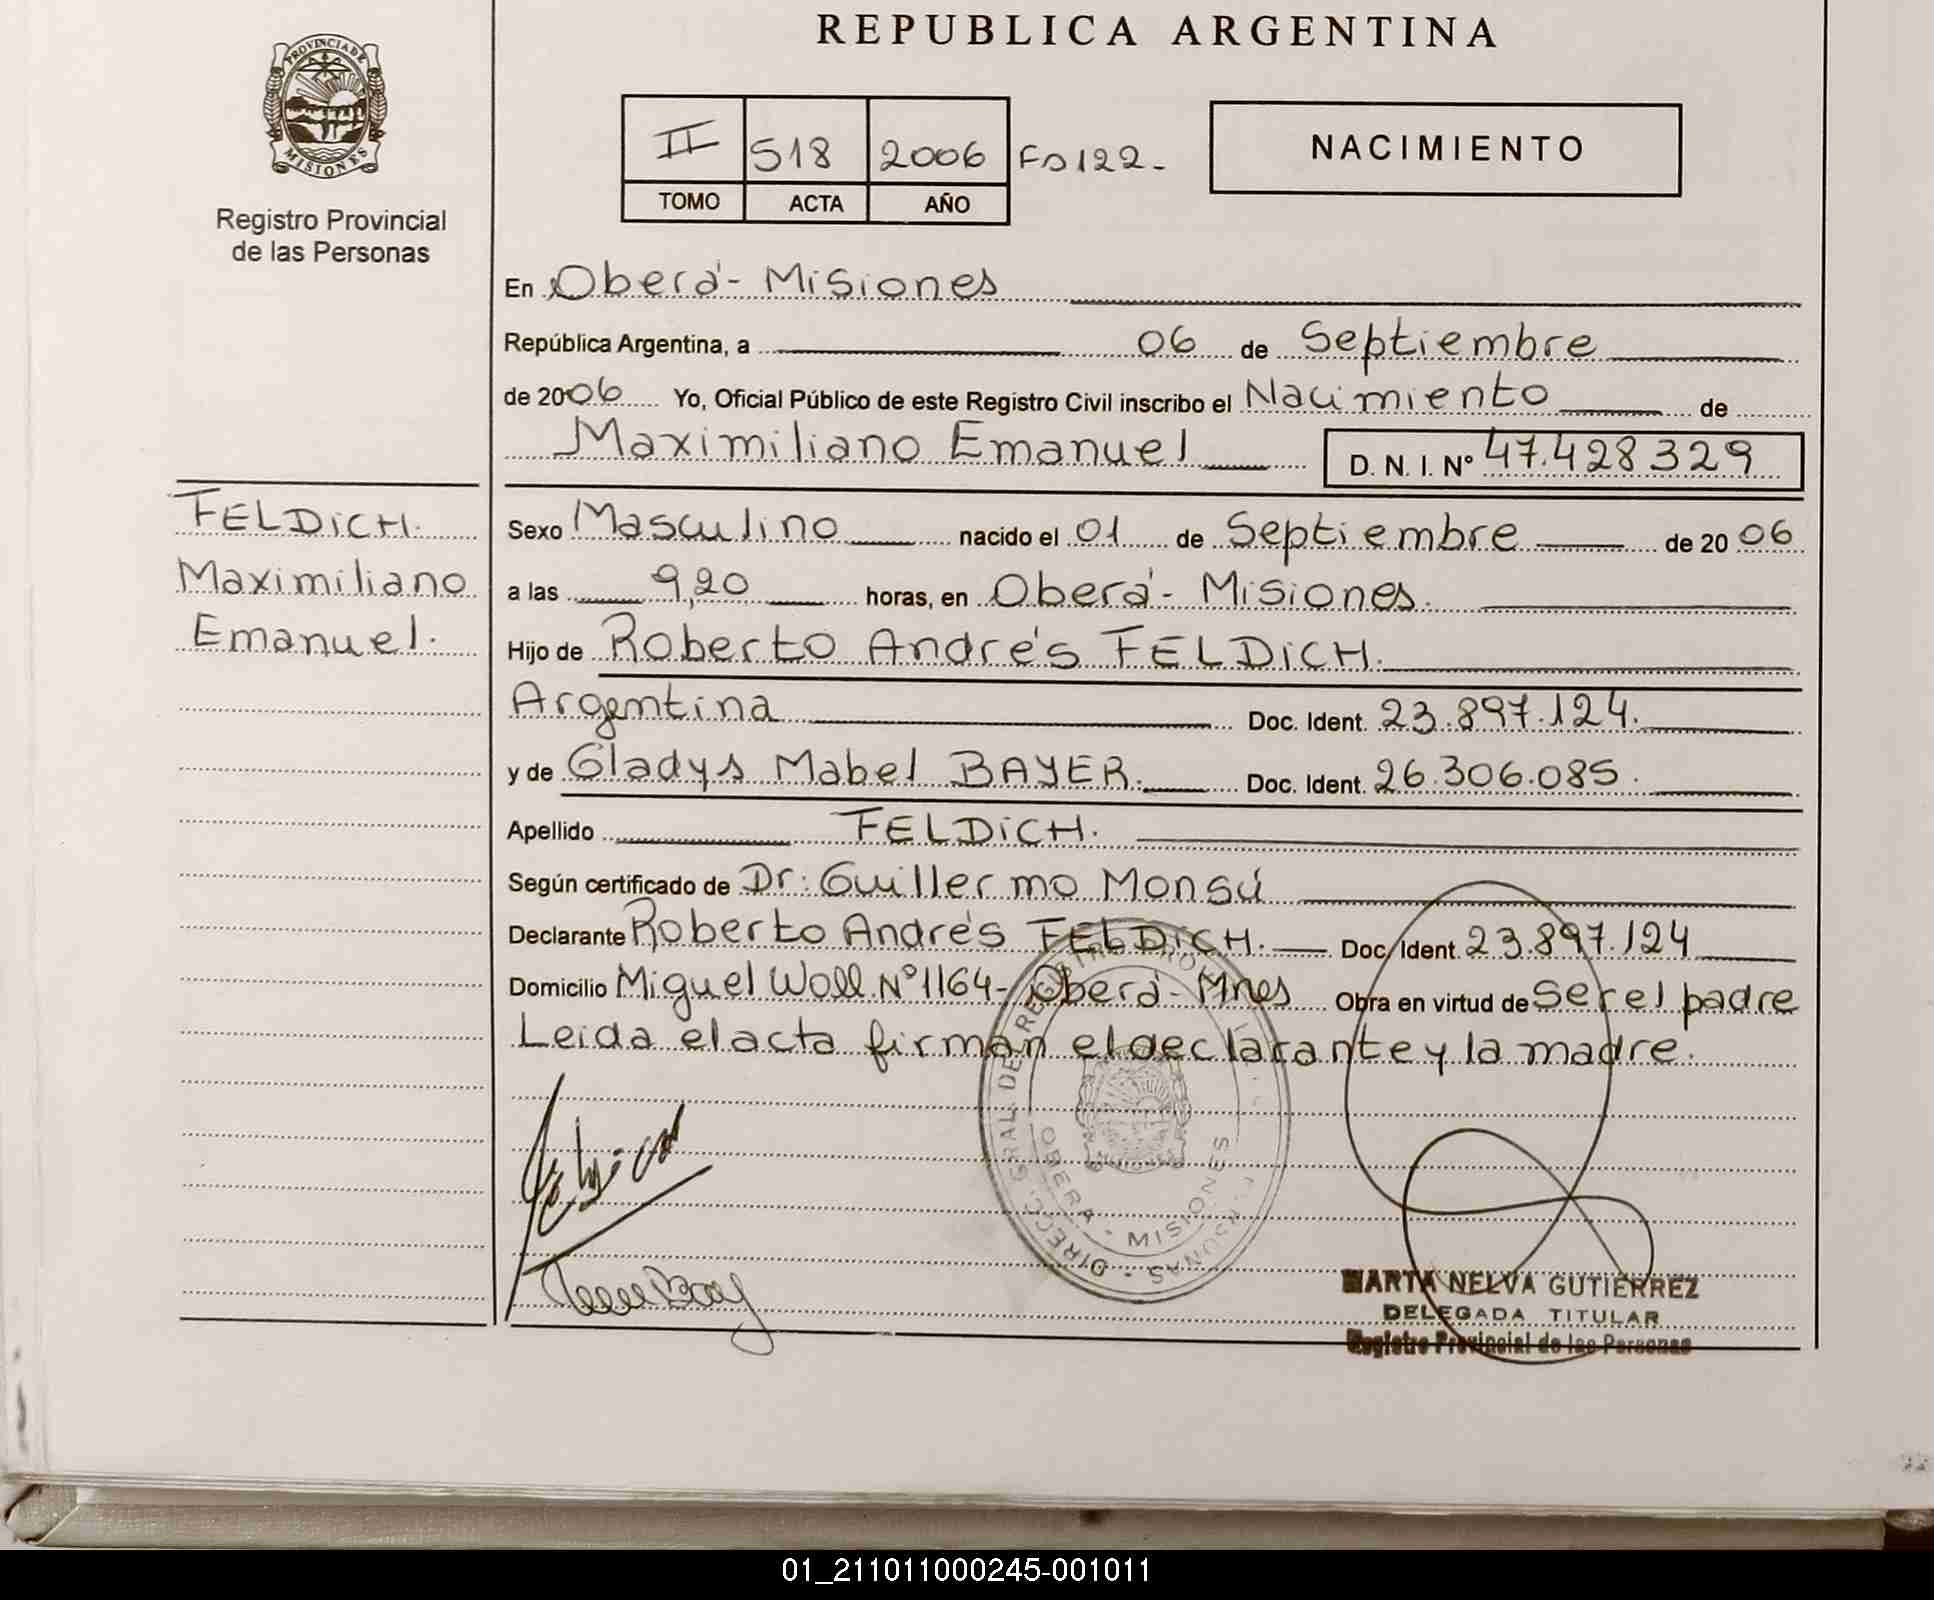 REPUBLICA ARGENTINA
PROVINCIA DE MISIONES
Registro Provincial
de las Personas
II 518 2006 Fo 122-
TOMO ACTA AÑO
NACIMIENTO
En Oberá - Misiones
República Argentina, a 06 de Septiembre
de 2006 Yo, Oficial Público de este Registro Civil inscribo el Nacimiento de
Maximiliano Emanuel D. N. I. Nº 47.428329
FELDiCH.
Maximiliano
Emanuel.
Sexo Masculino nacido el 01 de Septiembre de 2006
a las 9,20 horas, en Oberá - Misiones.
Hijo de Roberto Andrés FELDiCH.
Argentina Doc. Ident. 23.897.124.
y de Gladys Mabel BAYER. Doc. Ident. 26.306.085.
Apellido FELDiCH.
Según certificado de Dr: Guillermo Monsú
Declarante Roberto Andrés FELDiCH. Doc. Ident. 23.897.124
Domicilio Miguel Woll Nº 1164 - Oberá - Mnes Obra en virtud de Ser el padre
Leida el acta firman el declarante y la madre.
DIRECC. GRAL. DE REGISTRO
OBERA - MISIONES
MARTA NELVA GUTIERREZ
DELEGADA TITULAR
Registro Provincial de las Personas
01_211011000245-001011